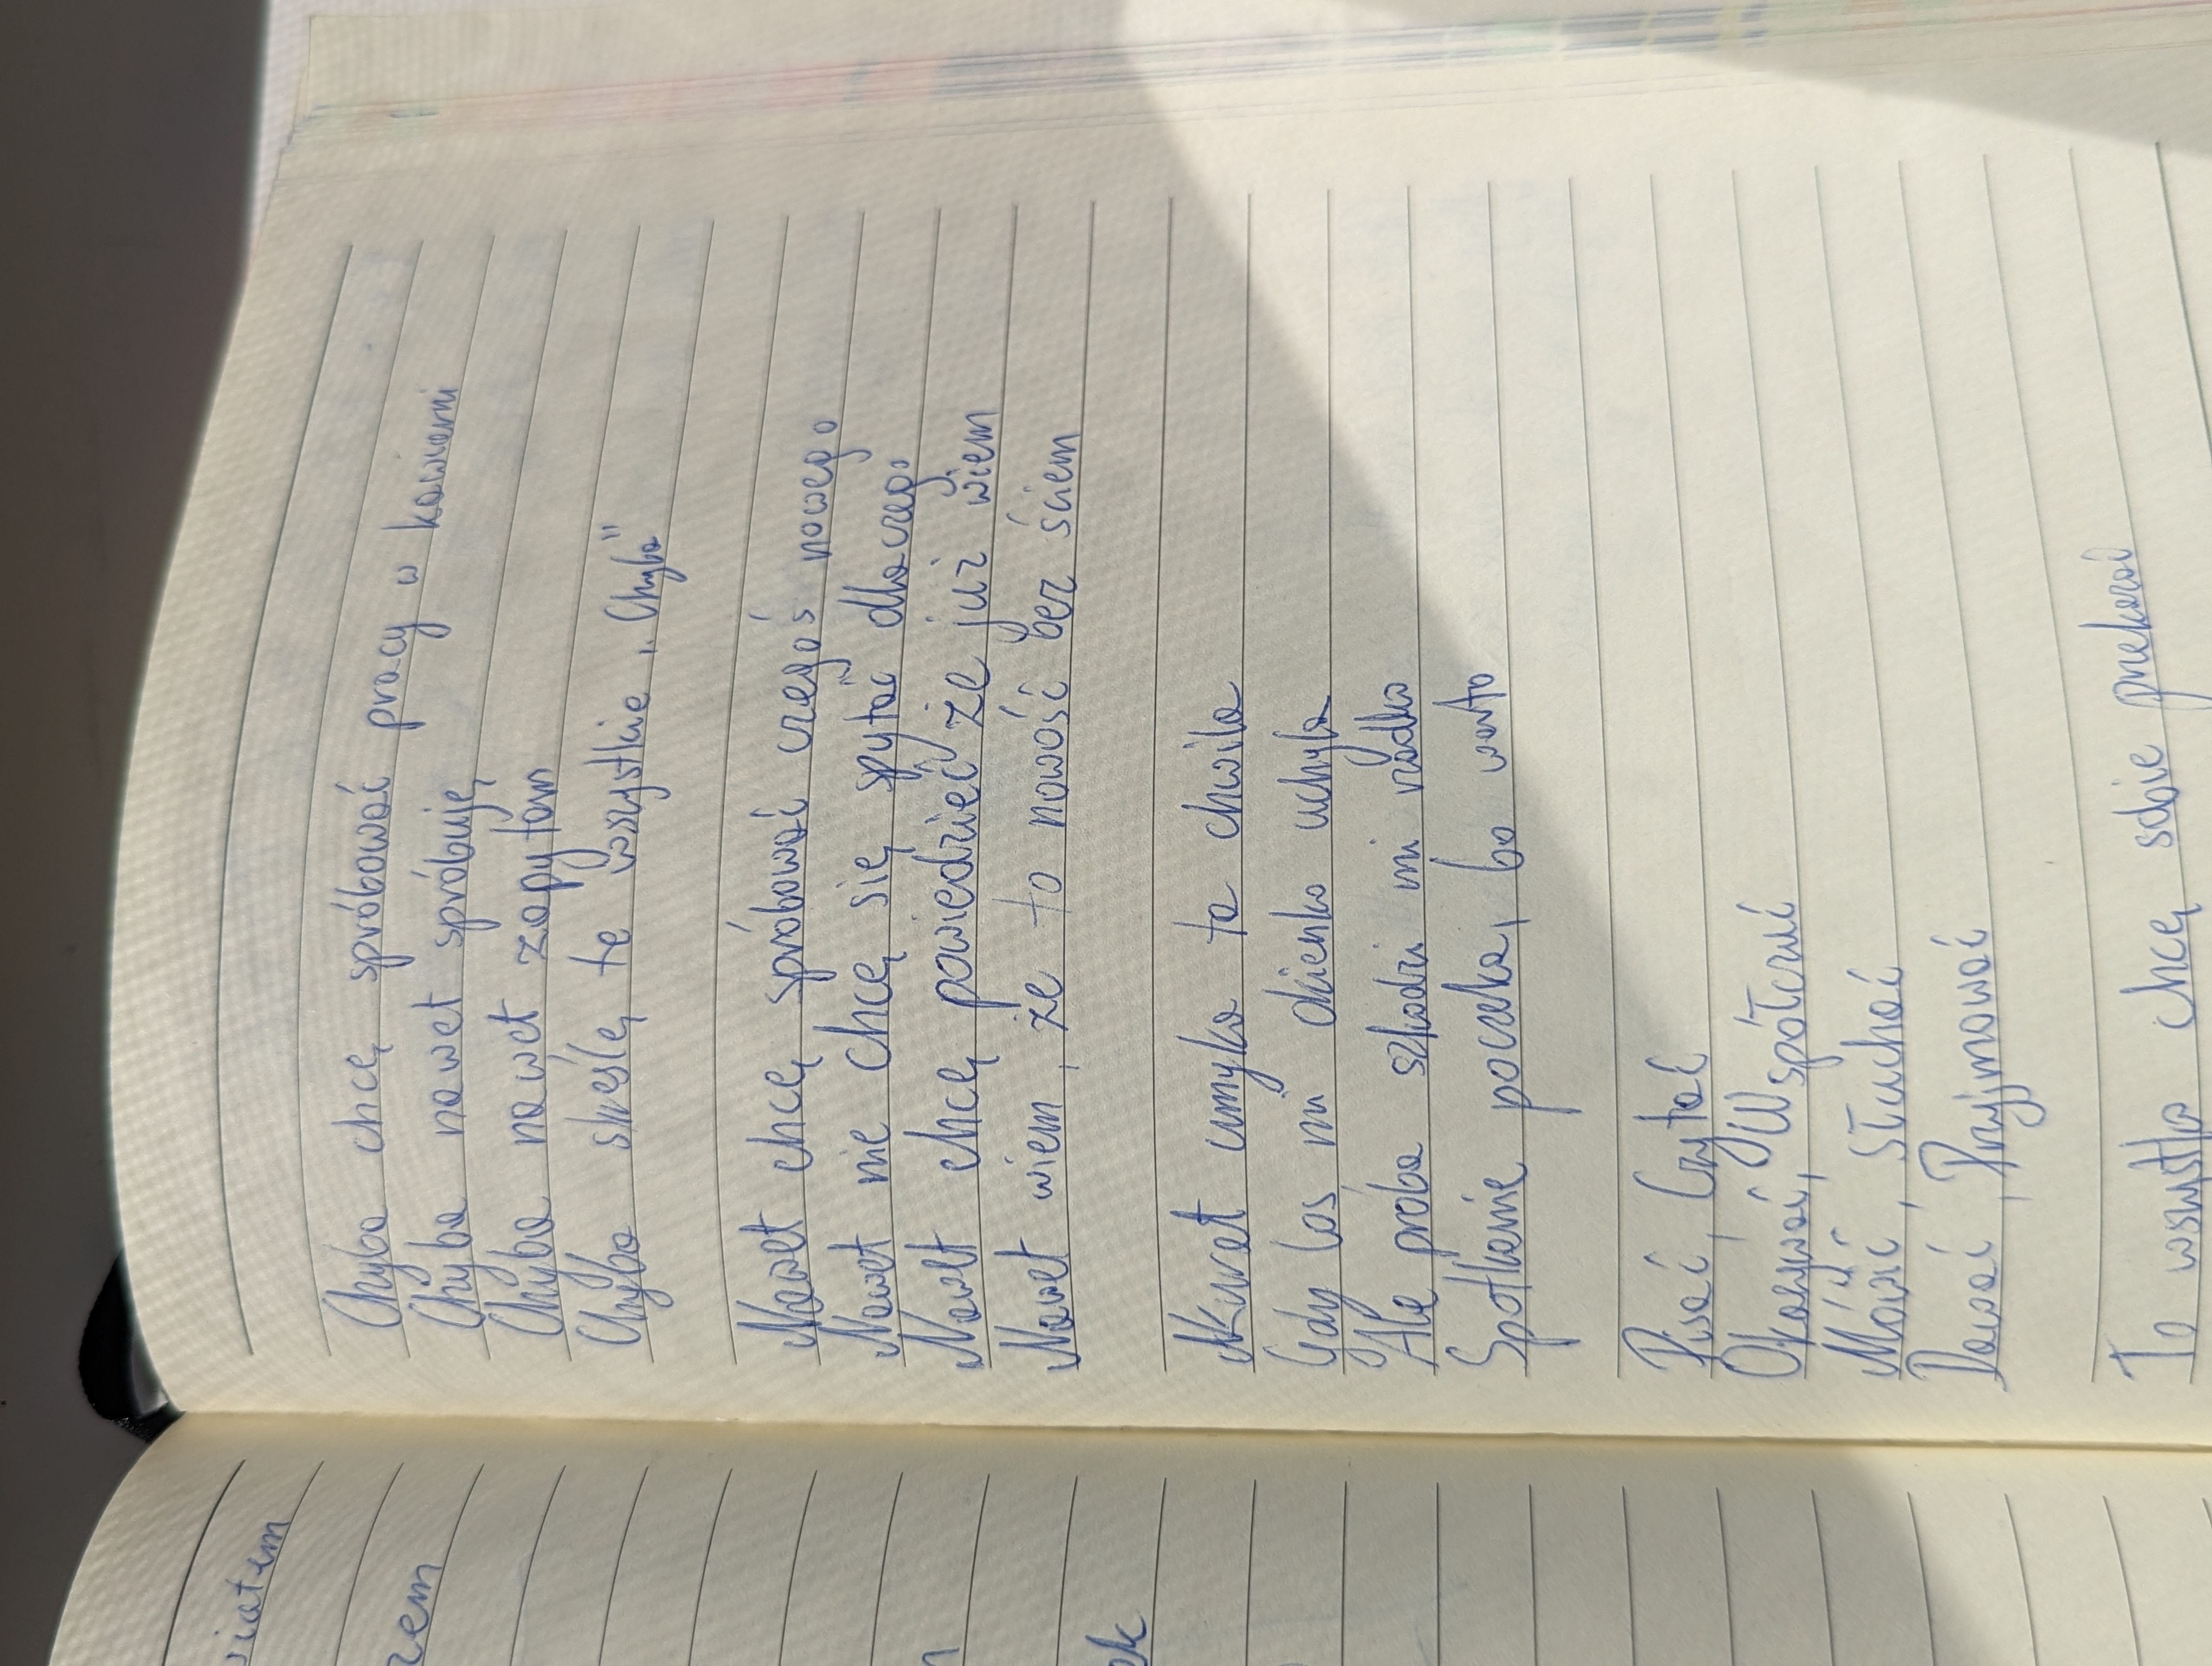 wiatem
zem
ek
Chyba chcę spróbować pracy w kawiarni
Chyba nawet spróbuję
Chyba nawet zapytam
Chyba skreślę te wszystkie „Chyba"
Nawet chcę spróbować czegoś nowego
Nawet nie chcę się spytać dlaczego
Nawet chcę powiedzieć że już wiem
Nawet wiem, że to nowość bez ściem
Nawet umyka ta chwila
Gdy los mi okienko uchyla
Ale próba szkodzi mi rzadko
Spotkanie poczeka, bo warto
Pisać, Czytać
Okazywać, Współczuć
Mówić, słuchać
Dawać, Przyjmować
To wszystko chcę sobie przekazać